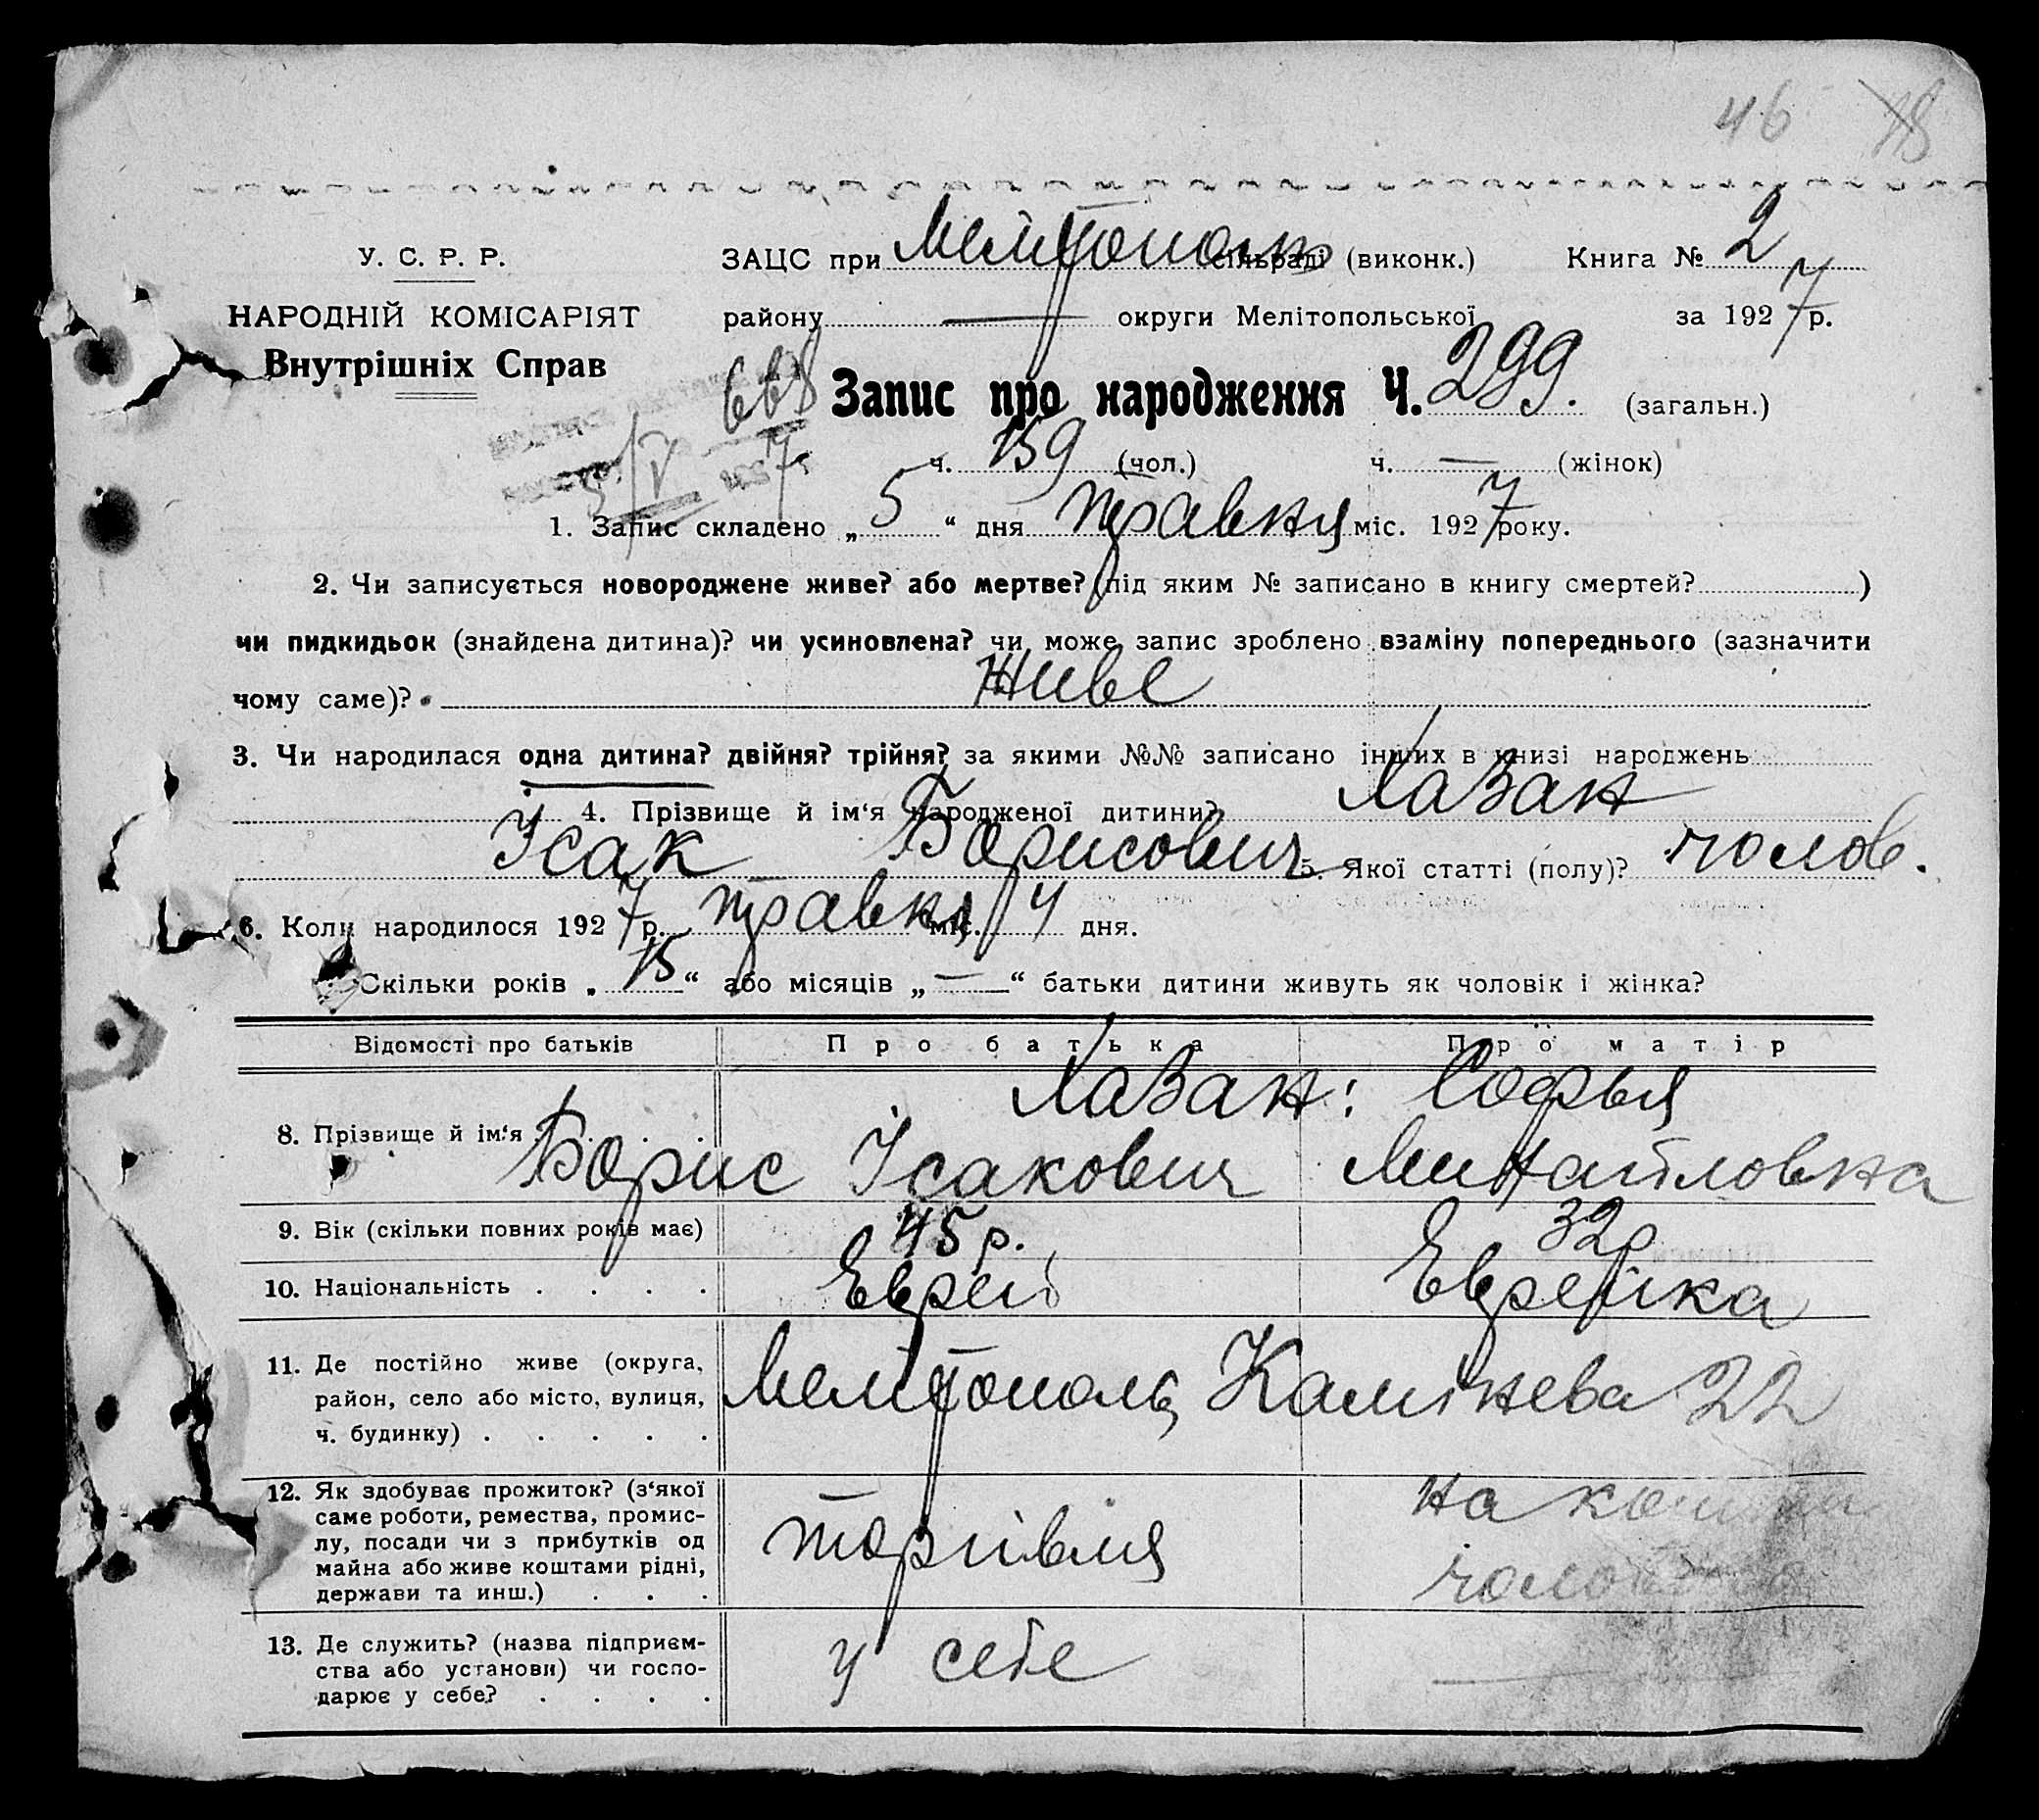 46 18
У. С. Р. Р. ЗАЦС при Мелітополь сільраді (виконк.) Книга № 2
НАРОДНІЙ КОМІСАРІЯТ району — округи Мелітопольської за 1927 р.
Внутрішніх Справ
668 Запис про народження Ч. 299. (загальн.)
5/V 1927 ч. 159 (чол.) ч. — (жінок)
1. Запис складено „ 5 “ дня травня міс. 1927 року.
2. Чи записується новороджене живе? або мертве? (під яким № записано в книгу смертей? )
чи пидкидьок (знайдена дитина)? чи усиновлена? чи може запис зроблено взаміну попереднього (зазначити
чому саме)? Живе
3. Чи народилася одна дитина? двійня? трійня? за якими №№ записано інших в книзі народжень
4. Прізвище й ім‘я народженої дитини? Хазан
Ісак Борисович 5. Якої статті (полу)? чолов.
6. Коли народилося 1927 р. травня міс. 4 дня.
Скільки років „ 15 “ або місяців „ — “ батьки дитини живуть як чоловік і жінка?
Відомості про батьків Про батька Про матір
Хазан: Софья
8. Прізвище й ім‘я Борис Ісакович Михайловна
9. Вік (скільки повних років має) 45 р. 32 р
10. Національність . . . . Еврей Еврейка
11. Де постійно живе (округа,
район, село або місто, вулиця, Мелітополь, Камінева 22
ч. будинку) . . . . .
12. Як здобуває прожиток? (з‘якої на кошти
саме роботи, ремества, промис-
лу, посади чи з прибутків од торгівля
майна або живе коштами рідні, чоловіка
держави та инш.) . . .
13. Де служить? (назва підприєм-
ства або установи) чи госпо- у себе —
дарює у себе? . . . .